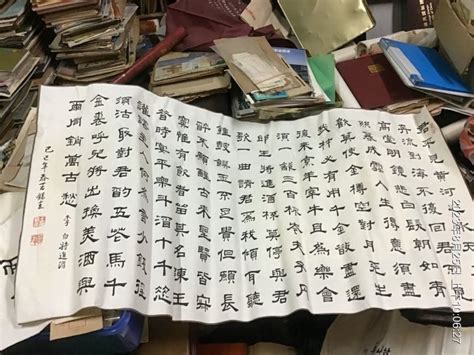 君不見黃河之水天上來
奔流到海不復回君不見
高堂明鏡悲白髮朝如青
絲暮成雪人生得意須盡
歡莫使金樽空對月天生
我材必有用千金散盡還
復來烹羊宰牛且為樂會
須一飲三百杯岑夫子丹
邱生將進酒杯莫停與君
歌一曲請君為我傾耳聽
鐘鼓饌玉不足貴但願長
醉不願醒古來聖賢皆寂
寞惟有飲者留其名陳王
昔時宴平樂斗酒十千恣
讙謔主人何為言少錢徑
須沽取對君酌五花馬千
金裘呼兒將出換美酒與
爾同銷萬古愁 李白將進酒
己巳年春